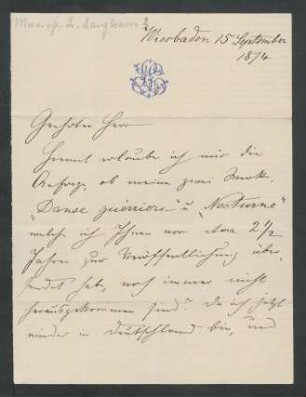 Wiesbaden 15 September
1874
Geehrter Herr
Hiermit erlaube ich mir die
Anfrage, ob meine zwei Werke
„Danse guerrière" u „Nocturne"
welche ich Ihnen vor etwa 2 1/2
Jahren zur Veröffentlichung über-
sendet hab, noch immer nicht
herausgekommen sind? Da ich jetzt
wieder in Deutschland bin, und